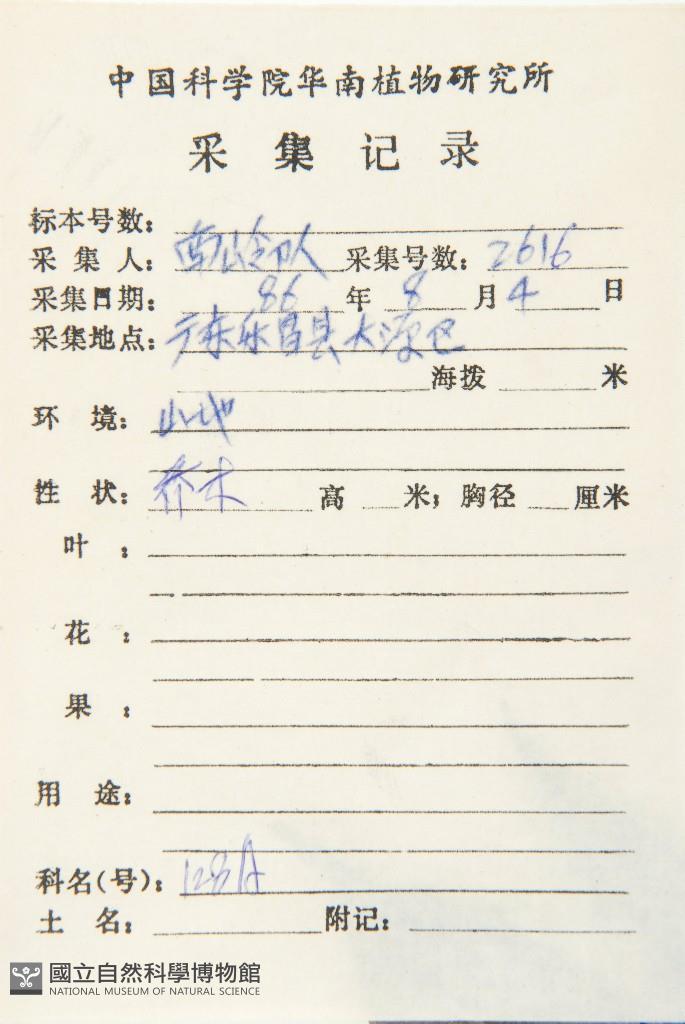 中国科学院华南植物研究所
采集记录
标本号数:
采集人: 南岭队 采集号数: 2616
采集日期: 86 年 8 月 4 日
采集地点: 广东乐昌县大源区
海拨 米
环境: 山地
性状: 乔木 高 米; 胸径 厘米
叶:
花:
果:
用途:
科名(号): 128A
土名: 附记:
國立自然科學博物館
NATIONAL MUSEUM OF NATURAL SCIENCE